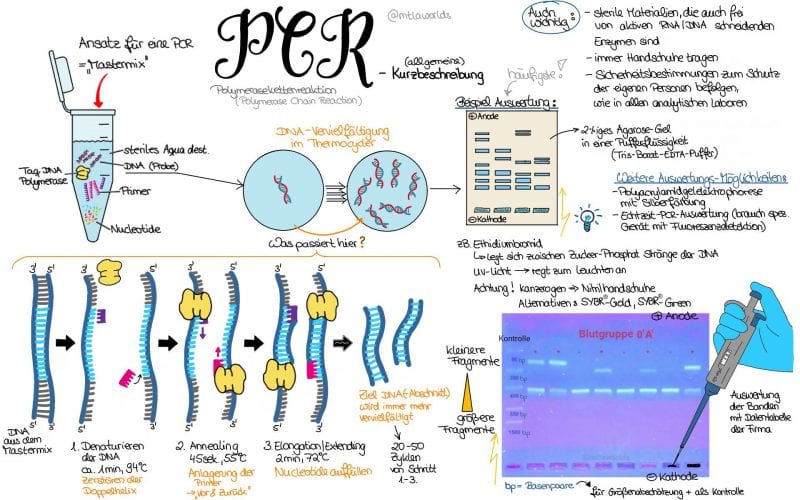 Ansatz für eine PCR
= "Mastermix"
PCR
@mtlaworlds
Polymerasekettenreaktion
(Polymerase Chain Reaction)
- (allgemeine)
Kurzbeschreibung
Auch wichtig:
- sterile Materialien, die auch frei
von aktiven RNA/DNA schneidenden
Enzymen sind
- immer Handschuhe tragen
- Sicherheitsbestimmungen zum Schutz
der eigenen Personen befolgen,
wie in allen analytischen Laboren
steriles Aqua dest.
DNA (Probe)
Taq DNA
Polymerase
Primer
Nucleotide
DNA-Vervielfältigung
im Thermocycler
Was passiert hier?
häufigste!
Beispiel Auswertung:
⊕ Anode
⊖ Kathode
2%iges Agarose-Gel
in einer Pufferflüssigkeit
(Tris-Borat-EDTA-Puffer)
Weitere Auswertungs-Möglichkeiten:
- Polyacrylamidgelelektrophorese
mit Silberfärbung
- Echtzeit-PCR-Auswertung (brauch spez.
Gerät mit Fluoreszenzdetektion)
zB. Ethidiumbromid
↳ legt sich zwischen Zucker-Phosphat Stränge der DNA
UV-Licht → regt zum Leuchten an
Achtung! kanzerogen → Nitrilhandschuhe
Alternativen: SYBR®-Gold, SYBR®-Green
3' 5' 3' 5' 3' 5' 3' 5'
DNA
aus dem
Mastermix
1. Denaturieren
der DNA
ca. 1min, 94°C
Zerstören der
Doppelhelix
2. Annealing
45sek, 55°C
Anlagerung der
Primer
→ "Vor & Zurück"
3. Elongation/Extending
2min, 72°C
Nucleotide auffüllen
Ziel DNA(-Abschnitt)
wird immer mehr
vervielfältigt
20-50
Zyklen
von Schritt
1-3.
⊕ Anode
Kontrolle
Blutgruppe 0'A'
kleinere
Fragmente
größere
Fragmente
⊖ Kathode
bp = Basenpaare
für Größenabschätzung + als Kontrolle
Auswertung
der Banden
mit Datentabelle
der Firma